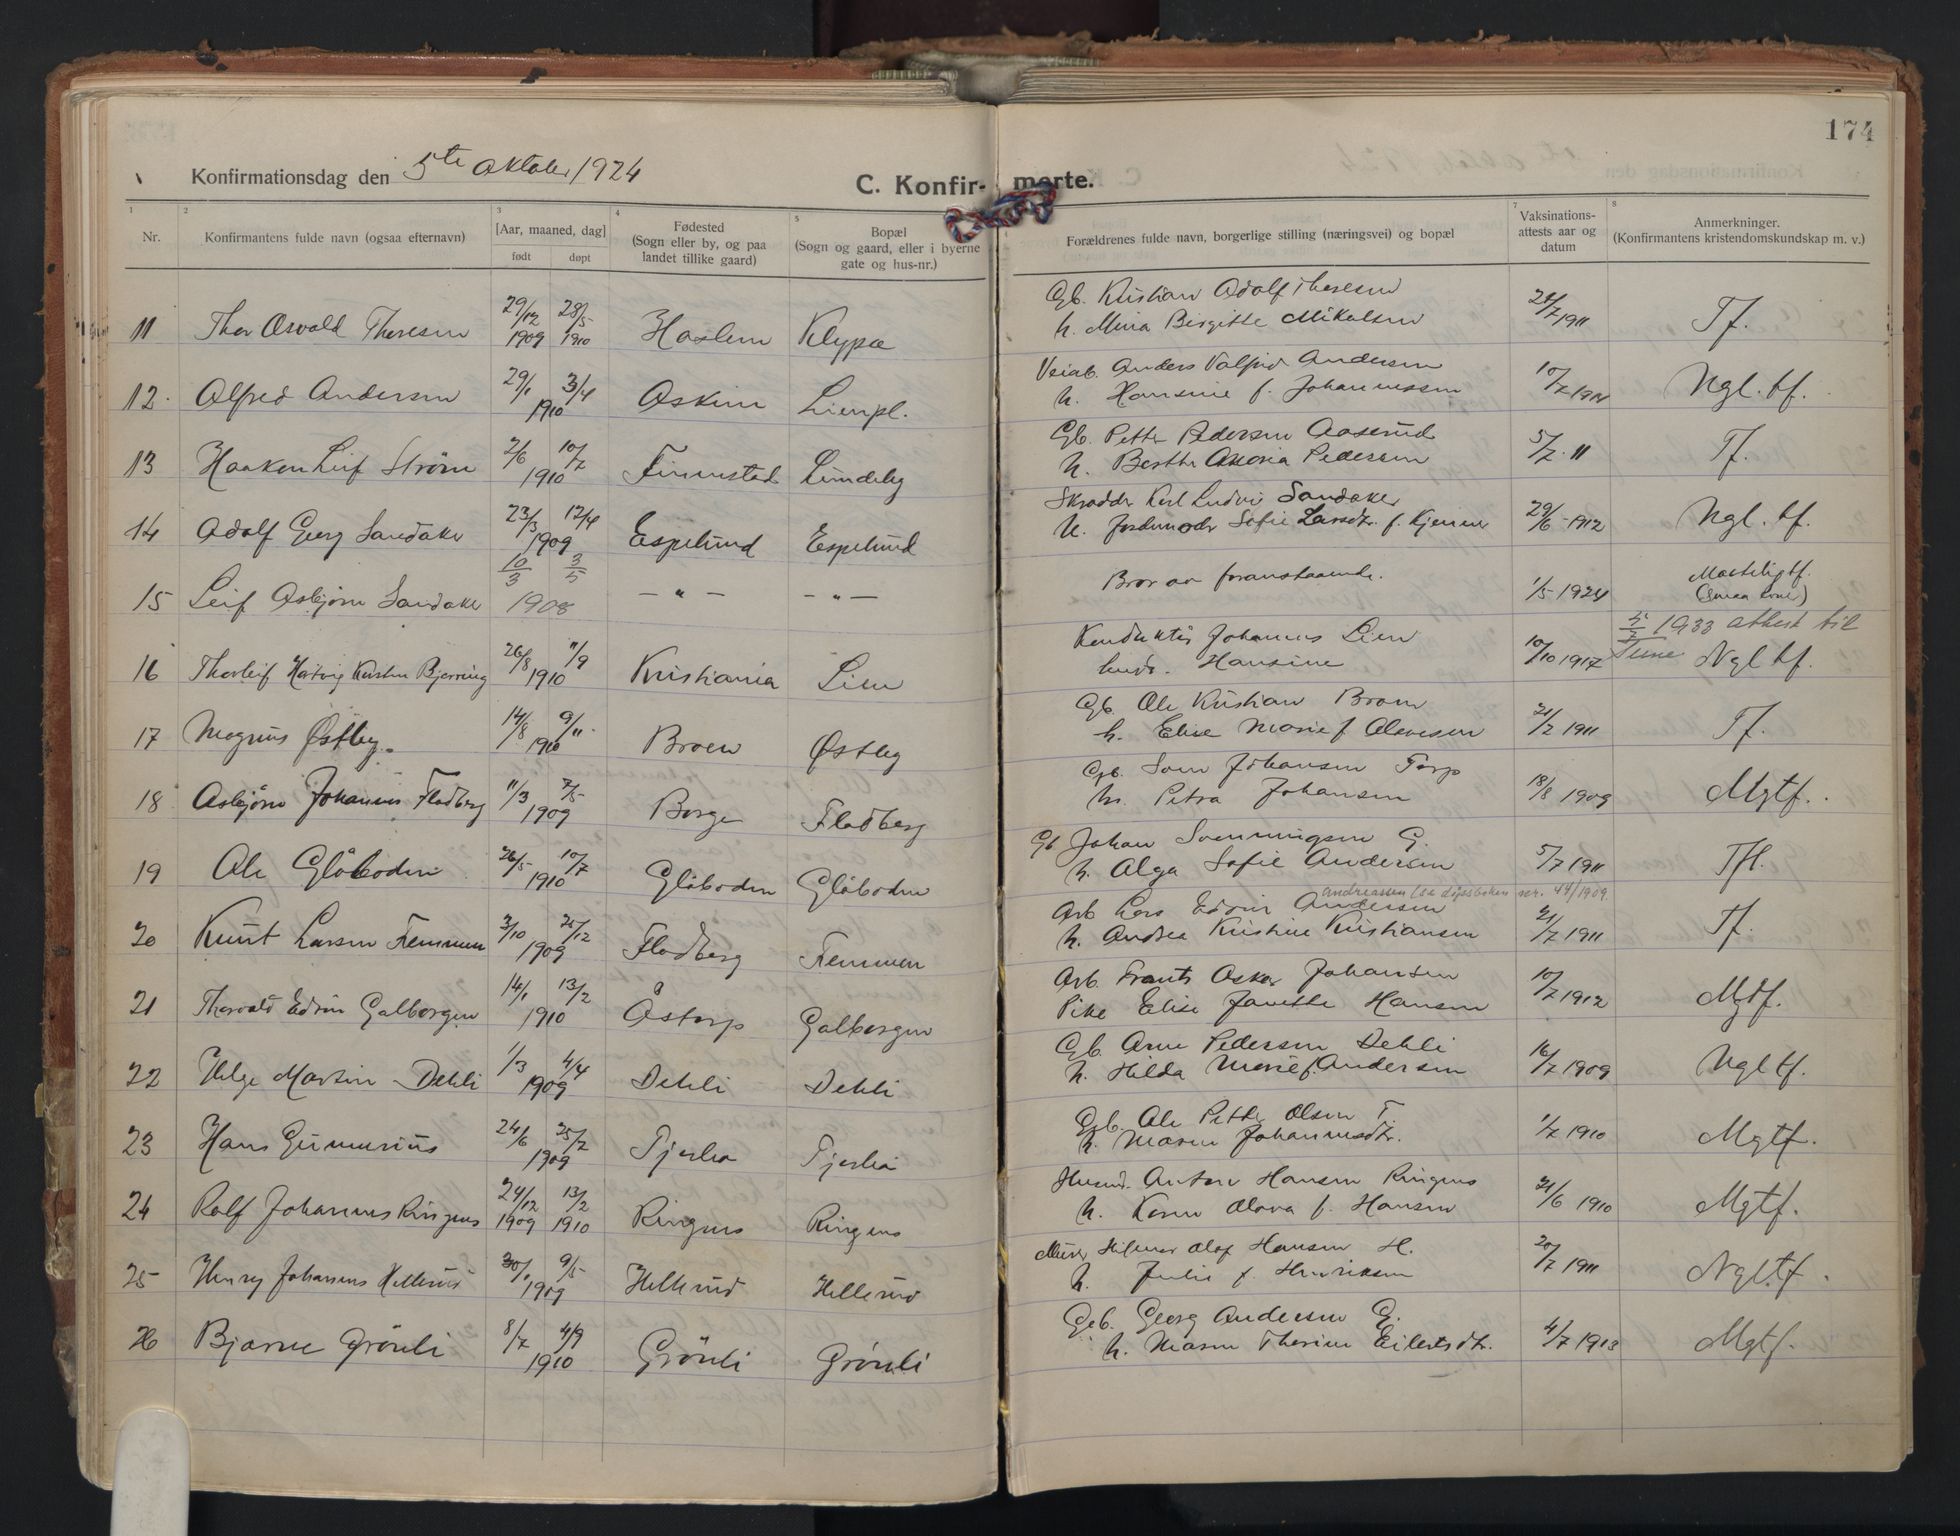 174
Konfirmationsdag den 5te Oktober 1924
C. Konfirmerte.
1 2 3 4 5 7 8
Nr. Konfirmantens fulde navn (ogsaa efternavn) [Aar, maaned, dag] født døpt Fødested (Sogn eller by, og paa landet tillike gaard) Bopæl (Sogn og gaard, eller i byerne gate og hus-nr.) Forældrenes fulde navn, borgerlige stilling (næringsvei) og bopæl Vaksinations-attests aar og datum Anmerkninger. (Konfirmantens kristendomskundskap m. v.)
11 Thor Osvald Theresen 29/12 1909 28/5 1910 Haslem Klypa Gb. Kristian Adolf Theresen
h. Mina Birgitte Mikalsen /7 1911 Tf.
12. Alfred Andersen 29/1 3/4 1910 Askim Lienpl. Veiarb. Anders Valfrid Andersen
h. Hansine f. Johannessen 10/7 Ngl. tf.
13 Haakon Leif Strøm 2/6 10/7 1910 Finnestad Lundeby Gb. Petter Pedersen Aaserud
h. Berthe Maria Pedersen 5/7 11 Tf.
14 Adolf Georg Sandaker 23/3 12/4 1909 Espelund Espelund Skrædder Karl Ludvig Sandaker
h. Jordemoder Sofie Larsdtr. f. Kjenner 29/6 1912 Ngl. tf.
15 Leif Asbjørn Sandaker 10/3 3/5 1908 — " — — " — Bror av foranstaaende. 1/5 1924 Masteligtf.
(smaa evner)
5/7 1933 attest til Tune
16 Thorleif Hartvig Kristen Bjerring 26/8 11/9 1910 Kristiania Lien Konduktør Johannes Lien
hust. Hansine 10/10 1917 Ngl tf.
17 Magnus Østby. 14/8 9/11 1910 Broen Østby Gb. Ole Kristian Broen
h. Elise Marie f. Olavesen 21/7 1911 Tf.
18 Asbjørn Johannes Fladberg 11/3 /5 1909 Borge Fladberg Gb. Johansen Torp
h. Petra Johansen 18/8 1909 Mgtf.
19 Ole Glåboden 26/5 10/7 1910 Glåboden Glåboden Gb Johan Svenningsen G.
h. Alga Sofie Andersen 5/7 1911 Tfl.
Andreassen (se dåpsboken nr. 44/1909
20 Knut Larsen Femmen 3/10 25/12 1909 Fladberg Femmen Arb Lars Edvin Andersen
h. Andrea Kristine Kristiansen 21/7 1911 Tf.
21 Thorvald Edvin Galborgen 14/1 13/2 1910 Åstorp Galborgen Arb. Frants Oskar Johansen
Pike Elise Janette Hansen 10/7 1912 Mgtf.
22 Helge Martin Dehli 1/3 4/4 1909 Dehli Dehli Gb. Arne Pedersen Dehli
h. Hilda Marie f. Andersen 16/7 1909 Ngl tf.
23 Hans Gunnerius 24/6 25/7 1909 Tjerbo Tjerbo Gb. Ole Petter Olsen T.
h. Maren Johannesdtr. 1/7 1910 Mgtf.
24 Rolf Johannes Ringnes 24/12 1909 13/2 1910 Ringnes Ringnes Husmd. Anton Hansen Ringnes
h. Karen Olava f. Hansen 21/6 1910 Mgtf.
25 Henry Johannes Hellerud 30/1 9/5 1909 Hellerud Hellerud Murer Hilmar Olaf Hansen H.
h. Julie f. Henriksen 20/7 1911 Ngl.tf.
26 Bjarne Grönli 8/7 4/9 1910 Grönli Grönli Geb. Georg Andersen G.
h. Maren Therine Eilertsdtr. 4/7 1913 Mgtf.